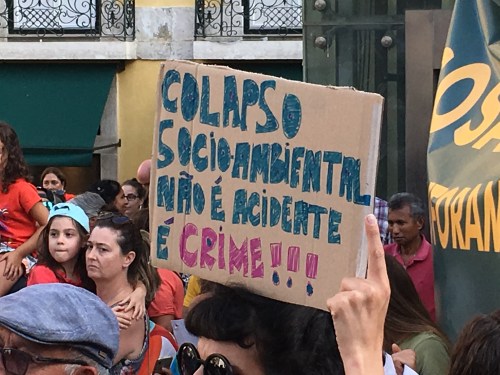 COLAPSO
SOCIO-AMBIENTAL
NÃO É ACIDENTE
É CRIME!!!